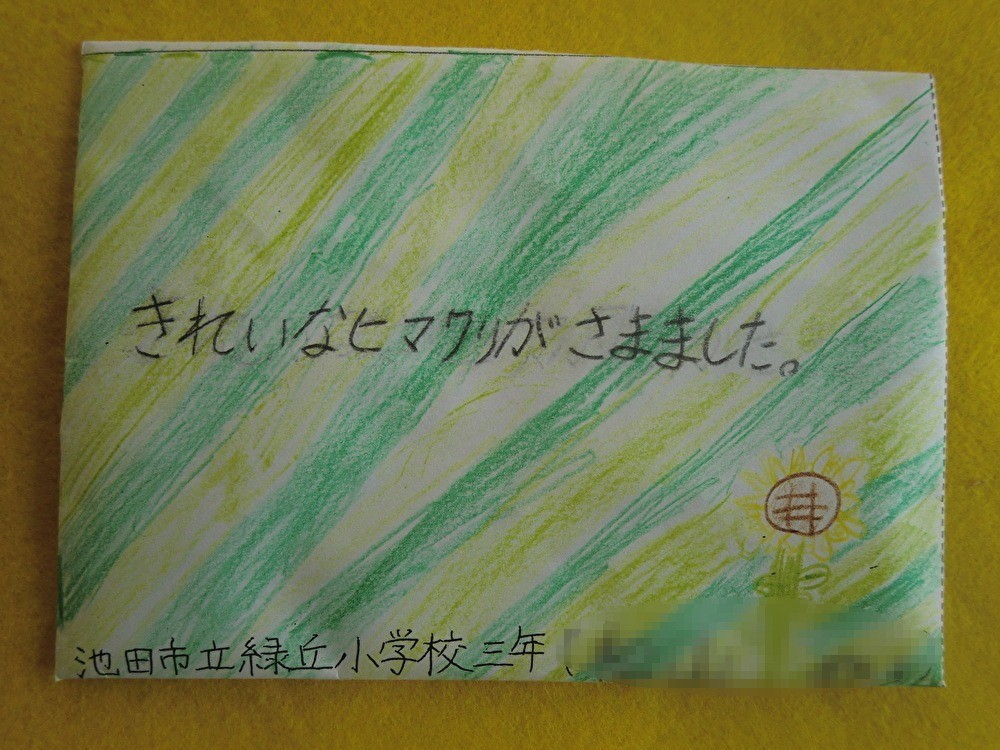 きれいなヒマワリがさまました。
池田市立緑丘小学校三年(